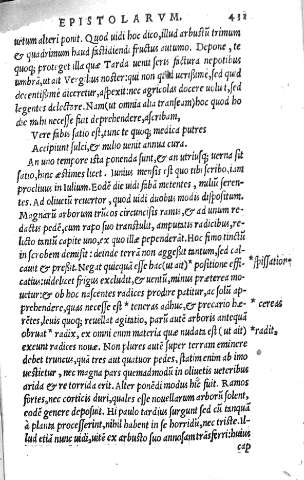 EPISTOLARVM. 431
tutum alteri ponit. Quod uidi hoc dico, illud arbustũ trimum
& quadrimum haud fastidiendi fructus autumo. Depone, te
quoq; proteget illa quæ Tarda uenit seris factura nepotibus
umbrã, ut ait Vergilius noster: qui non quid uerissimè, sed quid
decentissimè diceretur, aspexit: nec agricolas docere uoluit, sed
legentes delectare. Nam (ut omnia alia transeam) hoc quod ho
die mihi necesse fuit deprehendere, ascribam,
Vere fabis satio est, tunc te quoq; medica putres
Accipiunt sulci, & milio uenit annua cura.
An uno tempore ista ponenda sunt, & an utriusq; uerna sit
satio, hinc æstimes licet. Iunius mensis est quo tibi scribo, iam
procliuus in Iulium. Eodẽ die uidi fabã metentes, miliũ seren-
tes. Ad oliuetũ reuertor, quod uidi duobus modis dispositum.
Magnarũ arborum trũcos circuncisis ramis, & ad unum re-
dactis pedẽ, cum rapo suo transtulit, amputatis radicibus, re-
licto tantũ capite uno, ex quo illæ pependerãt. Hoc fimo tinctũ
in scrobem demisit: deinde terrã non aggessit tantum, sed cal-
cauit & pressit. Negat quicquã esse hac (ut ait) * positione effi-
* spissatione
catius: uidelicet frigus excludit, & uentũ, minus præterea mo
uetur: & ob hoc nascentes radices prodire patitur, ac solũ ap-
prehendere, quas necesse est * teneras adhuc, & precario hæ-
* cereas
rẽtes, leuis quoq; reuellat agitatio, parũ autẽ arboris antequã
obruat * radix, ex omni enim materia quæ nudata est (ut ait)
* radit,
exeunt radices nouæ. Non plures autẽ super terram eminere
debet truncus, quã tres aut quatuor pedes, statim enim ab imo
uestietur, nec magna pars quemadmodũ in oliuetis ueteribus
arida & retorrida erit. Alter ponẽdi modus hic fuit. Ramos
fortes, nec corticis duri, quales esse nouellarum arborũ solent,
eodẽ genere deposuit. Hi paulo tardius surgunt sed cũ tanquã
à planta processerint, nihil habent in se horridũ, nec triste. Il-
lud etiã nunc uidi, uitẽ ex arbusto suo annosam trãsferri: huius
cap